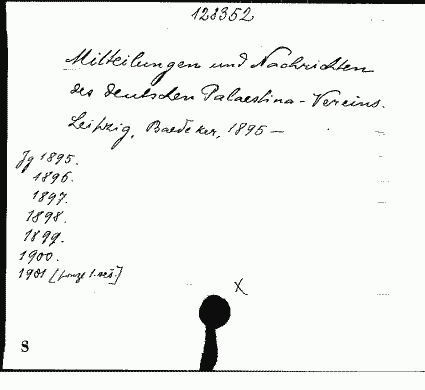 128352
Mitteilungen und Nachrichten
des deutschen Palaestina-Vereins.
Leipzig, Baedeker, 1895 —
Jg 1895.
1896.
1897.
1898.
1899.
1900.
1901 [pouze 1. seš.]
X
S